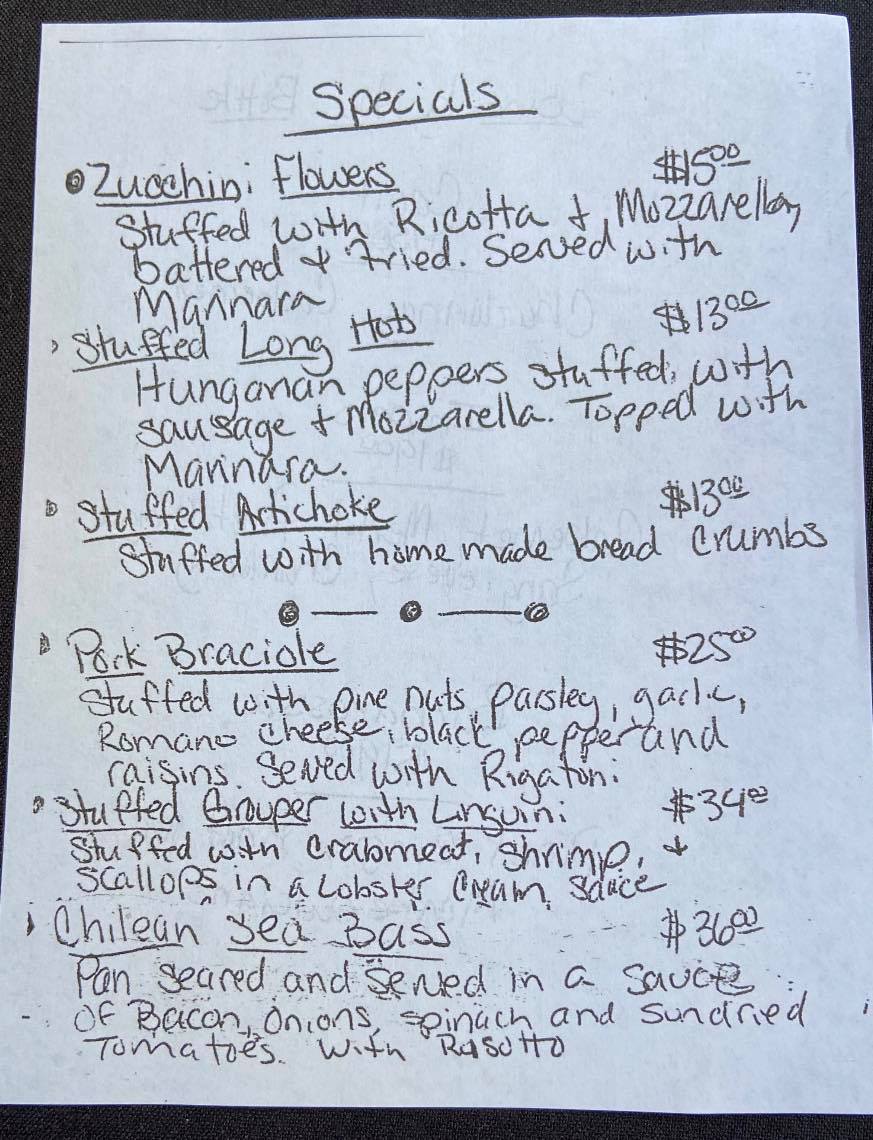 Specials
Zucchini Flowers $15.00
Stuffed with Ricotta + Mozzarella,
battered + fried. Served with
Marinara
Stuffed Long Hots $13.00
Hungarian peppers stuffed with
sausage + Mozzarella. Topped with
Marinara.
Stuffed Artichoke $13.00
Stuffed with homemade bread crumbs
Pork Braciole $25.00
Stuffed with pine nuts, parsley, garlic,
Romano cheese, black pepper and
raisins. Served with Rigatoni
Stuffed Grouper with Linguini $34.00
Stuffed with crabmeat, shrimp, +
scallops in a Lobster Cream Sauce
Chilean Sea Bass $36.00
Pan seared and served in a sauce
of Bacon, onions, spinach and sundried
Tomatoes. With Risotto